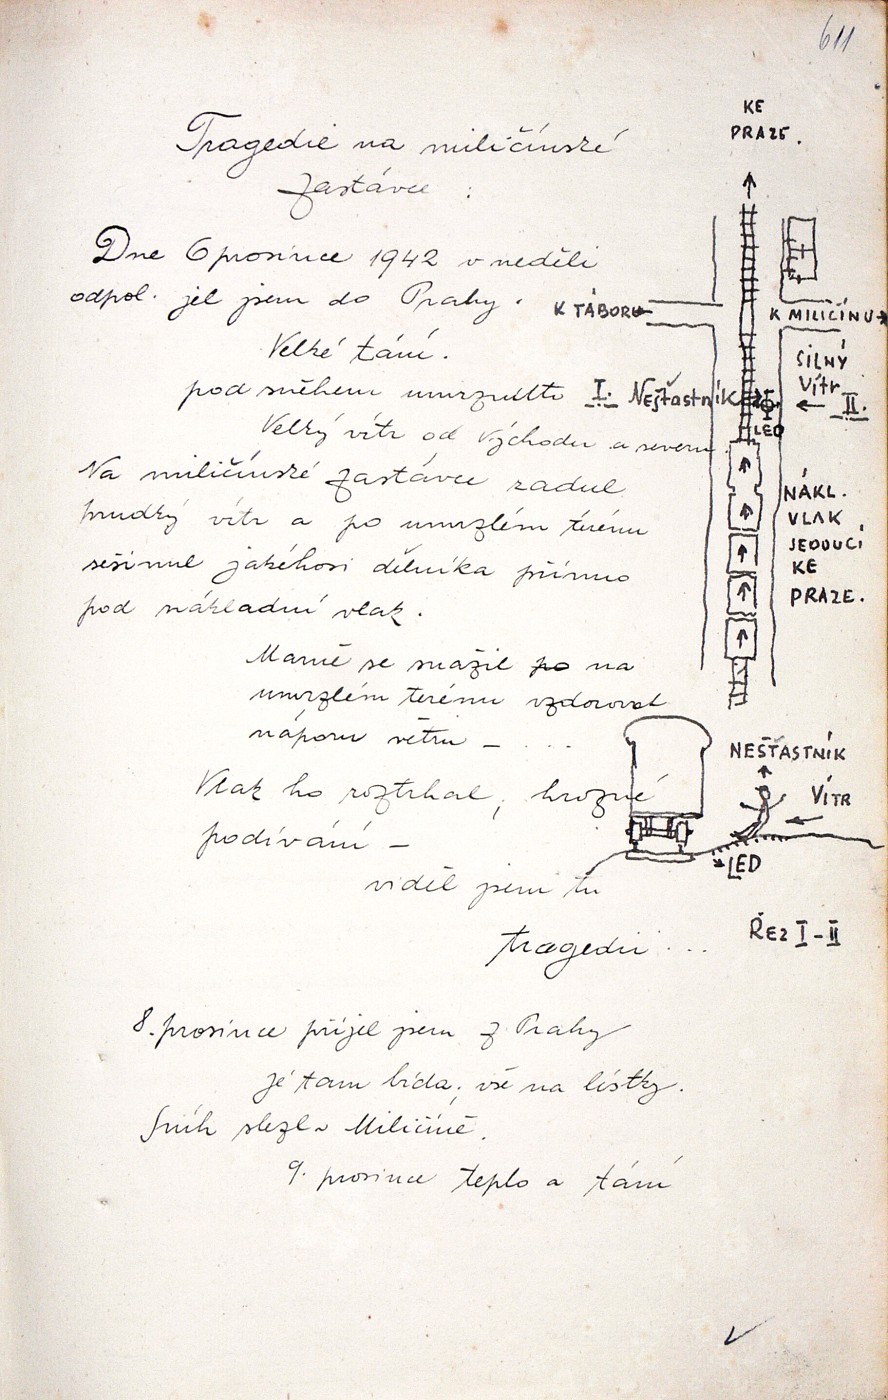 611
Tragedie na miličínské
zastávce :
Dne 6 prosince 1942 v neděli
odpol. jel jsem do Prahy.
Velké tání.
pod sněhem umrznutto
Velký vítr od východu a severu.
Na miličínské zastávce zadul
prudký vítr a po umrzlém terénu
sešinul jakéhosi dělníka přímo
pod nákladní vlak.
Marně se snažil po na
umrzlém terénu vzdorovat
náporu větru – ...
Vlak ho roztrhal, hrozné
podívání –
viděl jsem tu
tragedii ...
8. prosince přijel jsem z Prahy
je tam bída, vše na lístky.
Sníh slezl v Miličíně.
9. prosince teplo a tání
KE
PRAZE.
K TÁBORU
K MILIČÍNU
SILNÝ
VÍTR
I. NEŠŤASTNÍK
II.
LED
NÁKL.
VLAK
JEDOUCÍ
KE
PRAZE.
NEŠŤASTNÍK
VÍTR
LED
ŘEZ I-II